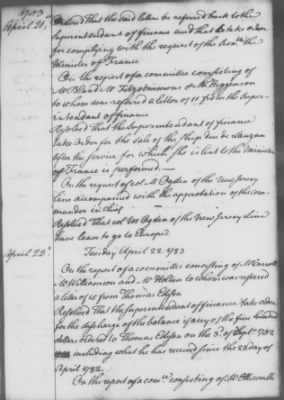 1783
April 21,
Resolved that the said letter be referred back to the
Superintendant of finance and that he take order
for complying with the request of the Honble the
Minister of France
On the report of a committee consisting of
Mr Bland Mr Fitzsimmons & Mr Higginson
to whom was referred a letter of 11 from the Super-
intendant of finance
Resolved That the Superintendant of finance
take order for the sale of the Ship duc de Lauzun
after the service for which she is lent to the Minister
of France is performed.—
On the request of col M Ogden of the New Jersey
Line accompanied with the approbation of the com-
mander in chief
Resolved that col M Ogden of the New Jersey Line
have leave to go to Europe
April 22d
Tuesday April 22 1783
On the report of a committee consisting of Mr Carroll
Mr Williamson and Mr Holten to whom was referred
a letter of 15 from Thomas Edison
Resolved That the Superintendant of finance take order
for the discharge of the balance if any of the five hundred
dollars ordered to Thomas Edison on the 3d of Septr 1782
including what he has received since the 22 day of
April 1782.
On the report of a comee consisting of Mr Ellsworth